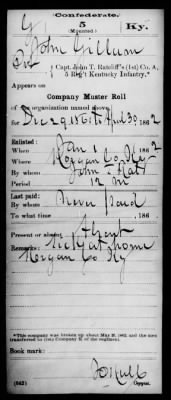 Confederate.
5
(Mounted.)
Ky.
John Gillum
Pvt, Capt. John T. Ratcliff's (1st) Co. A,
5 Reg't Kentucky Infantry.*
Appears on
Company Muster Roll
of the organization named above
for Dec 29 1861 to April 30, 1862
Enlisted:
When Jan 1, 1862
Where Morgan Co Ky
By whom John T Rat
Period 12 m
Last paid:
By whom Never paid
To what time , 186
Present or absent Absent
Remarks: Sick at home
Morgan Co Ky
*This company was broken up about May 21, 1862, and the men
transferred to (2d) Company E of the regiment.
Book mark:
(642)
Copyist.